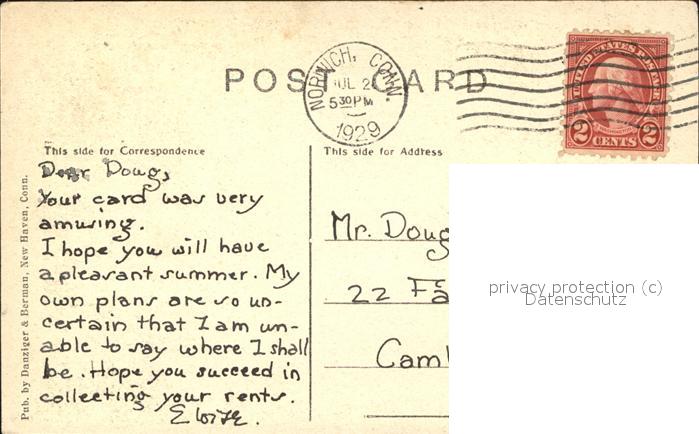 POST CARD
NORWICH, CONN.
JUL 2
5 30 PM
1929
UNITED STATES POSTAGE
2 CENTS 2
This side for Correspondence
This side for Address
Dear Doug,
Your card was very
amusing.
I hope you will have
a pleasant summer. My
own plans are so un-
certain that I am un-
able to say where I shall
be. Hope you succeed in
collecting your rents.
Eloise.
Mr. Doug
22 Fa
Cam
privacy protection (c)
Datenschutz
Pub. by Danziger & Berman, New Haven, Conn.